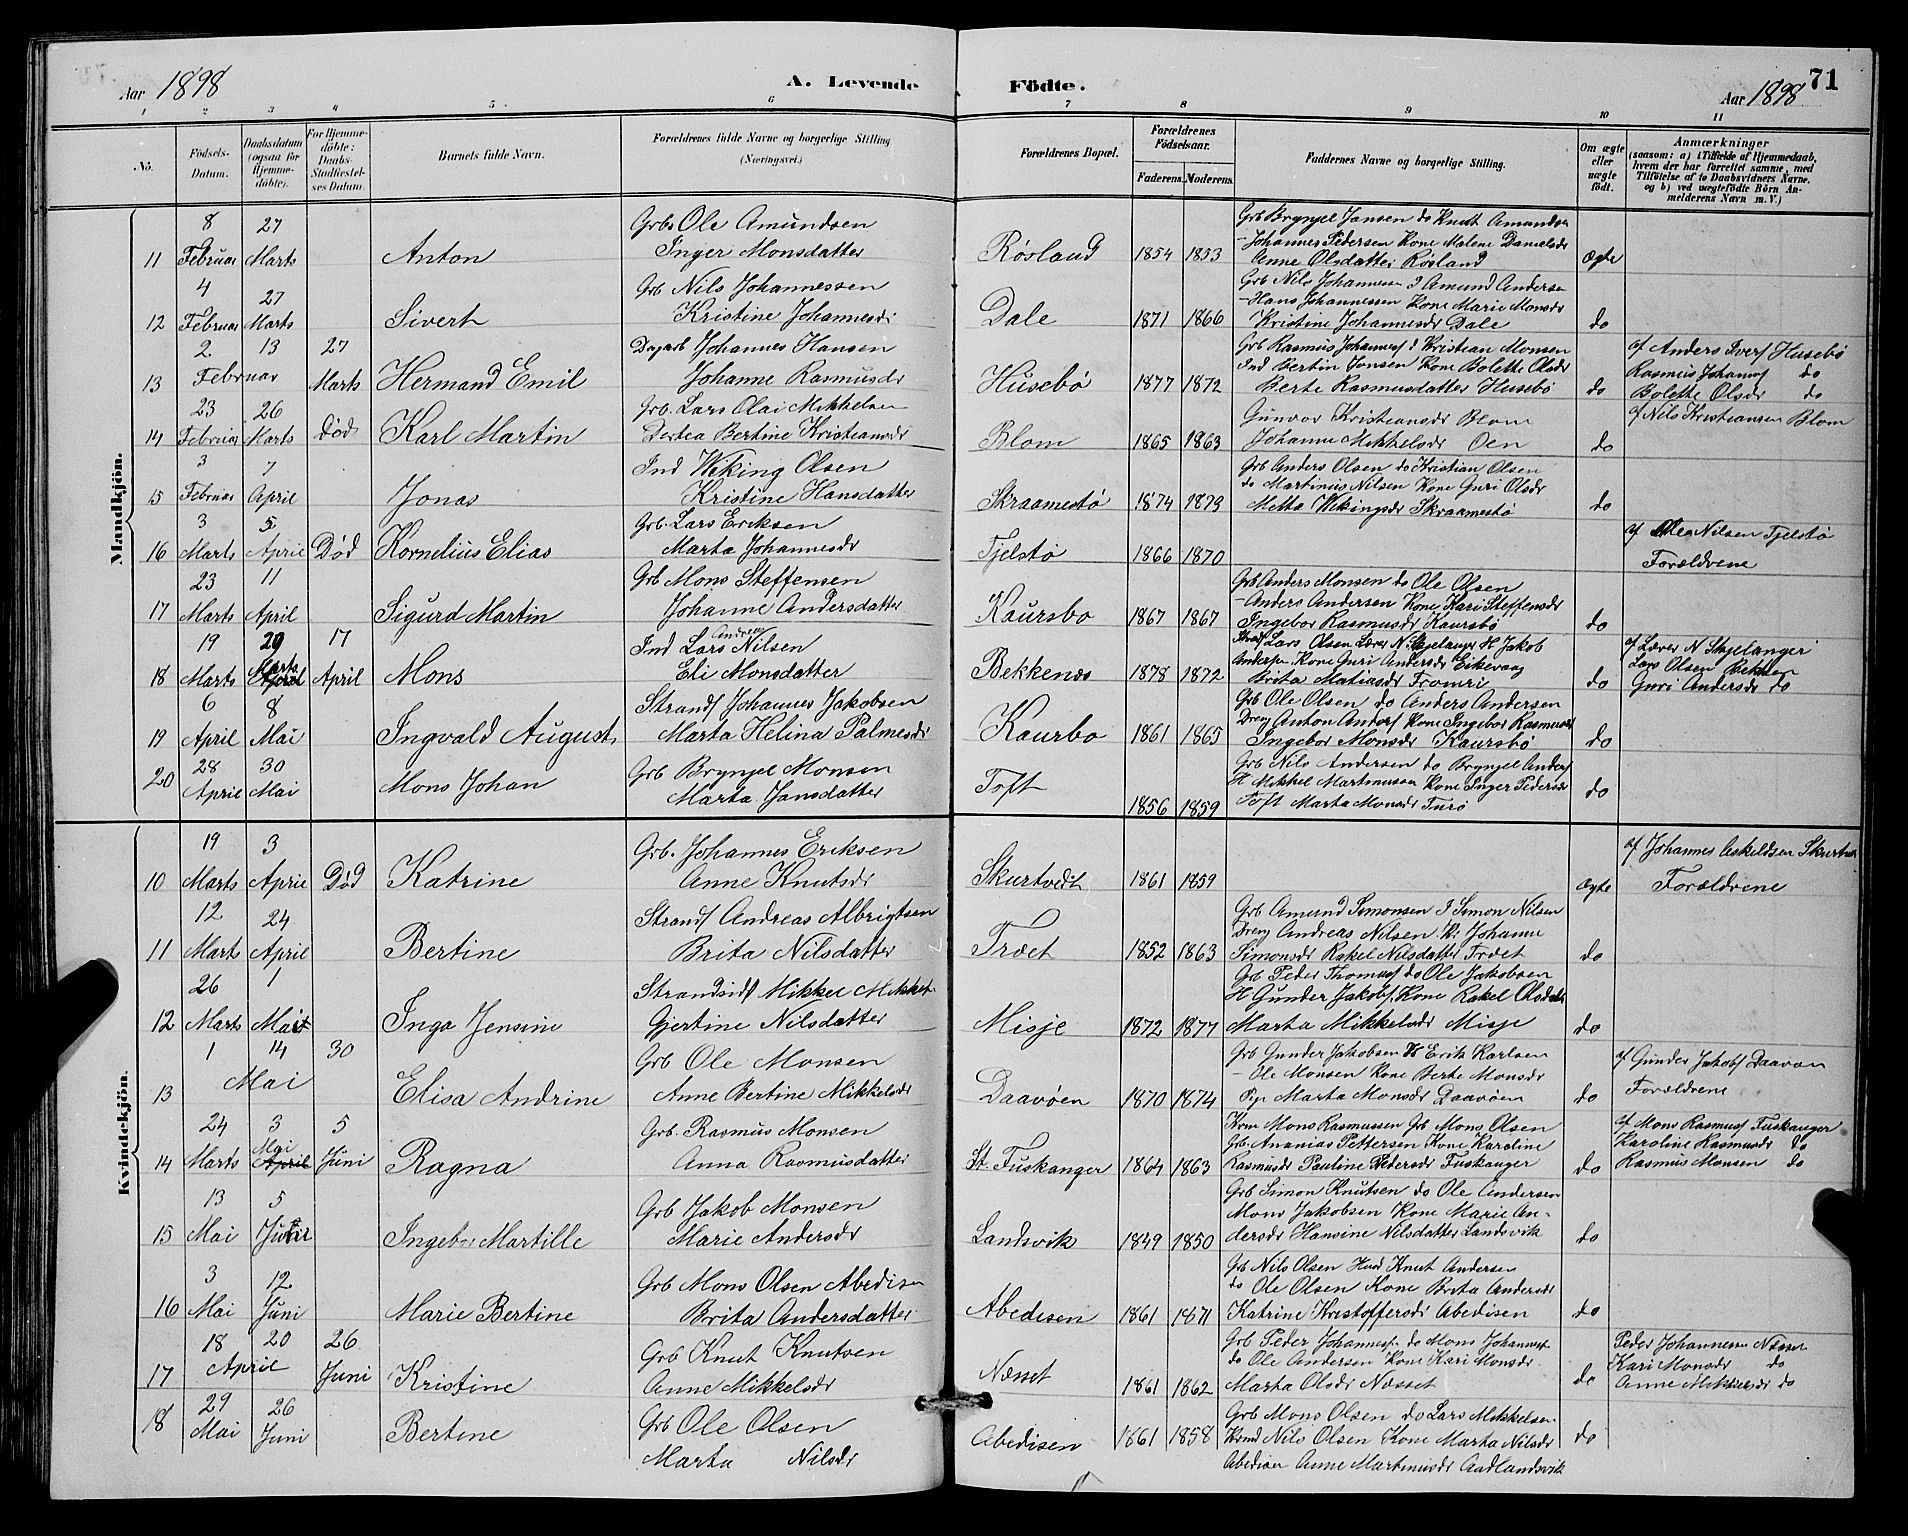 Aar 1898 A. Levende Födte. Aar 1898 71
1 2 3 4 5 6 7 8 9 10 11
No. Födsels-Datum. Daabsdatum (ogsaa for Hjemme-döbte). For Hjemme-döbte: Daabs-Stadfæstel-ses Datum. Barnets fulde Navn. Forældrenes fulde Navne og borgerlige Stilling (Næringsvei.) Forældrenes Bopæl. Forældrenes Födselsaar. Faderens. Moderens. Faddernes Navne og borgerlige Stilling. Om ægte eller uægte født. Anmærkninger (saasom: a) i Tilfælde af Hjemmedaab, hvem der har forrettet samme, med Tilföielse af to Daabsvidners Navne, og b) ved uægtefödte Börn An-melderens Navn m. V.)
Mandkjön.
8 27 Grb Ole Amundsen Grb Brynjel Jansen do Knut Amundsen
11 Februar Marts Anton Inger Monsdatter Røsland 1854 1853 - Johannes Pedersen Kone Malene Danielsdr Ægte
Anne Olsdatter Røsland
4 27 Grb Nils Johannessen Grb Nils Johannesen I Amund Andersen
12 Februar Marts Sivert Kristine Johannesdr Dale 1871 1866 - Hans Johannessen Kone Marie Monsdr do
Kristine Johannesdr Dale
2 13 27 Dagarb Johannes Hansen Grb Rasmus Johannesf I Kristian Monsen af Anders Iversf Husebø
13 Februar Marts Hermand Emil Johanne Rasmusdr Husebø 1877 1872 Ind Bertin Jonsen Kone Bolette Olsdr do Rasmus Johannsf do
Berte Rasmusdatter Husebø Bolette Olsdr do
23 26 Grb. Lars Olai Mikkelsen Gunvor Kristiansdr Blom af Nils Kristiansen Blom
14 Februar Marts Død Karl Martin Dortea Bertine Kristiansdr Blom 1865 1863 Johanne Mikkelsdr Oen do
3 7 Ind Weking Olsen Grb Anders Olsen do Kristian Olsen
15 Februar April Jonas Kristine Hansdatter Skraamestø 1874 1873 do Martinius Nilsen Kone Guri Olsdr do
Metta Wikingsdr Skraamestø
3 5 Grb. Lars Eriksen af Nilsen Tjelstø
16 Marts April Død Kornelius Elias Marta Johannesdr Tjelstø 1866 1870 Forældrene
23 11 Grb Mons Steffensen Grb Anders Monsen do Ole Olsen
17 Marts April Sigurd Martin Johanne Andersdatter Kaursbo 1867 1867 - Anders Andersen Kone Kari Steffensdr do
Ingebor Rasmusdr Kaursbø
19 29 17 Ind Lars Andreas Nilsen Strandf Lars Olsen Lærer N Skjelanger H Jakob af Lærer N Skjelanger
18 Marts Marts April April Mons Eli Monsdatter Bekkenes 1878 1872 Andersen Kone Guri Andersdr Eikevaag do Lars Olsen Bekken
Brita Matiasdr Fromri Guri Andersdr do
6 8 Strandf Johannes Jakobsen Grb Ole Olsen do Anders Andersen
19 April Mai Ingvald August Marta Helina Palmesdr Kaurbo 1861 1865 Dreng Anton Andersf Kone Ingebor Rasmusdr do
Ingebor Monsdr Kaursbø
28 30 Grb Brynjel Monsen Grb Nils Andersen do Brynjel Andersf
20 April Mai Mons Johan Marta Jansdatter Toft 1856 1859 H Mikkel Martinussen Kone Inger Pedersdr do
Toft Marta Monsdr Turø
Kvindekjön.
19 3 Grb. Johannes Eriksen af Johannes Askeldsen
10 Marts April Død Katrine Anne Knutsdr Skurtvedt 1861 1859 Ægte Forældrene
12 24 Strandf Andreas Albrigtsen Grb Amund Simonsen I Simon Nilsen
11 Marts April Bertine Brita Nilsdatter Træet 1852 1863 Dreng Andreas Nilsen K. Johanne do
Simonsdr Rakel Nilsdatter Træet
26 1 Strandsidf Mikkel Mikkel Grb Peder Thomasf do Ole Jakobsen
12 Marts Mai Inga Jensine Gjertine Nilsdatter Misje 1872 1877 H Gunder Jakobsf. Kone Rakel Olsdatr do
Marta Mikkelsdr Misje
1 14 30 Grb Ole Monsen Grb Gunder Jakobsen H Erik Karlsen af Gunder Jakobsf Daavøen
13 Mai Elisa Andrine Anne Bertine Mikkelsdr Daavøen 1870 1874 - Ole Monsen Kone Berte Monsdr do Forældrene
Pige Marta Monsdr Daavøen
24 3 5 Grb. Rasmus Monsen Krm Mons Rasmussen Grb Mons Olsen af Mons Rasmusf Fuskanger
14 Marts Mai April Juni Ragna Anna Rasmusdatter St. Fuskanger 1864 1863 Grb. Ananias Pettersen Kone Karoline do Karoline Rasmusdr do
Rasmusdr Pauline Pedersdr Fuskanger Rasmus Monsen do
13 5 Grb Jakob Monsen Grb Simon Knutsen do Ole Andersen
15 Mai Juni Ingebor Martille Marie Andersdr Landsvik 1849 1850 Mons Jakobsen Kone Marie An-dersdr Hansine Nilsdatter Landsvik do
3 12 Grb Mons Olsen Abedisen Grb Nils Olsen Husd Knut Andersen
16 Mai Juni Marie Bertine Brita Andersdatter Abedisen 1861 1871 do Ole Olsen Kone Brita Andersdr do
Katrine Kristoffersdr Abedisen
18 20 26 Grb Knut Knutsen Grb Peder Johannesf do Mons Johannesf Peder Johannesen Næsset
17 April Juni Kristine Anne Mikkelsdr Næsset 1861 1862 do Ole Andersen Kone Kari Monsdr do Kari Monsdr do
Marta Olsdr Næsset Anne Mikkelsdr do
29 26 Grb Ole Olsen Grb Mons Olsen do Lars Mikkelsen
18 Mai Juni Bertine Marta Nilsdr Abedisen 1861 1858 Husmd Nils Olsen Kone Marta Nilsdr do
Abedisen Anne Martinusdr Aadlandsvik